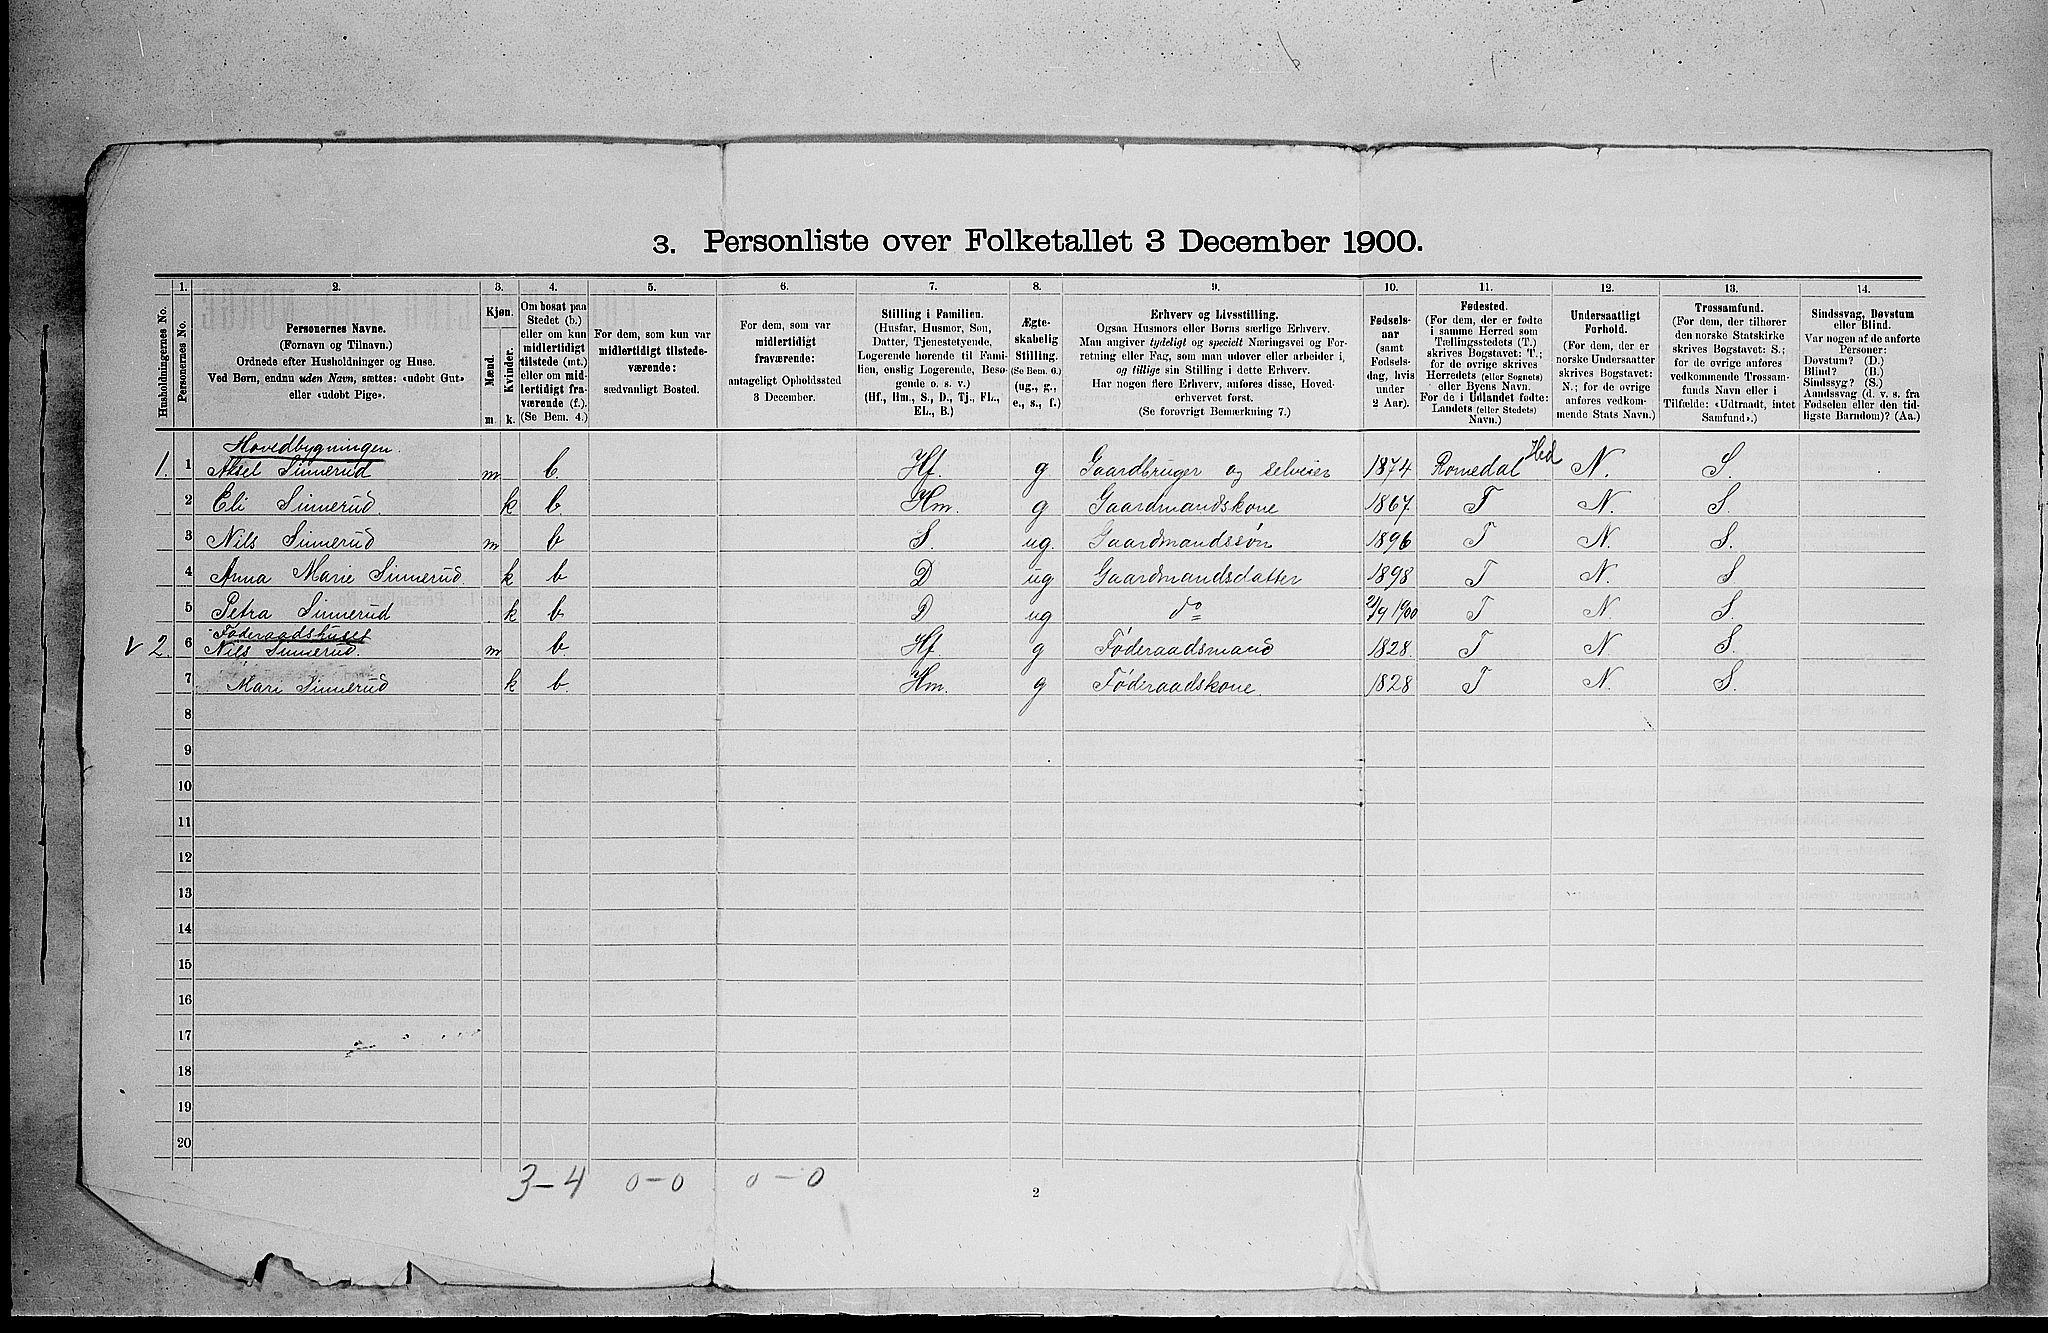 3. Personliste over Folketallet 3 December 1900.
1. 2. 3. 4. 5. 6. 7. 8. 9. 10. 11. 12. 13. 14.
Husholdningernes No.
Personernes No.
Personernes Navne.
(Fornavn og Tilnavn.)
Ordnede efter Husholdninger og Huse.
Ved Børn, endnu uden Navn, sættes: «udøbt Gut»
eller «udøbt Pige».
Kjøn.
Mænd.
Kvinder.
m. k.
Om bosat paa
Stedet (b.)
eller om kun
midlertidigt
tilstede (mt.)
eller om mid-
lertidigt fra-
værende (f.).
(Se Bem. 4.)
For dem, som kun var
midlertidigt tilstede-
værende:
sædvanligt Bosted.
For dem, som var
midlertidigt
fraværende:
antageligt Opholdssted
3 December.
Stilling i Familien.
(Husfar, Husmor, Søn,
Datter, Tjenestetyende,
Logerende hørende til Fami-
lien, enslig Logerende, Besø-
gende o. s. v.)
(Hf., Hm., S., D., Tj., FL.,
EL., B.)
Ægte-
skabelig
Stilling.
(Se Bem. 6.)
(ug., g.,
e., s., f.)
Erhverv og Livsstilling.
Ogsaa Husmors eller Børns særlige Erhverv.
Man angiver tydeligt og specielt Næringsvei og For-
retning eller Fag, som man udøver eller arbeider i,
og tillige sin Stilling i dette Erhverv.
Har nogen flere Erhverv, anføres disse, Hoved-
erhvervet først.
(Se forøvrigt Bemærkning 7.)
Fødsels-
aar
(samt
Fødsels-
dag, hvis
under
2 Aar).
Fødested.
(For dem, der er fødte
i samme Herred som
Tællingsstedets (T.)
skrives Bogstavet: T.;
for de øvrige skrives
Herredets (eller Sognets)
eller Byens Navn.
For de i Udlandet fødte:
Landets (eller Stedets)
Navn.)
Undersaatligt
Forhold.
(For dem, der er
norske Undersaatter
skrives Bogstavet:
N.; for de øvrige
anføres vedkom-
mende Stats Navn.)
Trossamfund.
(For dem, der tilhører
den norske Statskirke
skrives Bogstavet: S.;
for de øvrige anføres
vedkommende Trossam-
funds Navn eller i
Tilfælde: «Udtraadt, intet
Samfund».)
Sindssvag, Døvstum
eller Blind.
Var nogen af de anførte
Personer:
Døvstum? (D.)
Blind? (B.)
Sindssyg? (S.)
Aandssvag (d. v. s. fra
Fødselen eller den tid-
ligste Barndom)? (Aa.)
Hovedbygningen.
1. 1 Axel Sinnerud m b. Hf. g Gaardbruger og selveier 1874 Romedal Hed N. S.
2 Eli Sinnerud. k b. Hm. g Gaardmandskone 1867. T N. S.
3 Nils Sinnerud m b S. ug. Gaardmandssøn 1896 T N. S.
4 Anna Marie Sinnerud. k b D ug Gaardmandsdatter 1898 T N. S
5 Petra Sinnerud k b. D ug do 1900 T N. S.
Føderaadshuset
v 2. 6 Nils Sinnerud. m b. Hf. g Føderaadsmand 1828. T N S.
7 Mari Sinnerud k b. Hm. g Føderaadskone. 1828 T N. S.
8
9
10
11
12
13
14
15
16
17
18
19
20
3-4 0-0 0-0
2